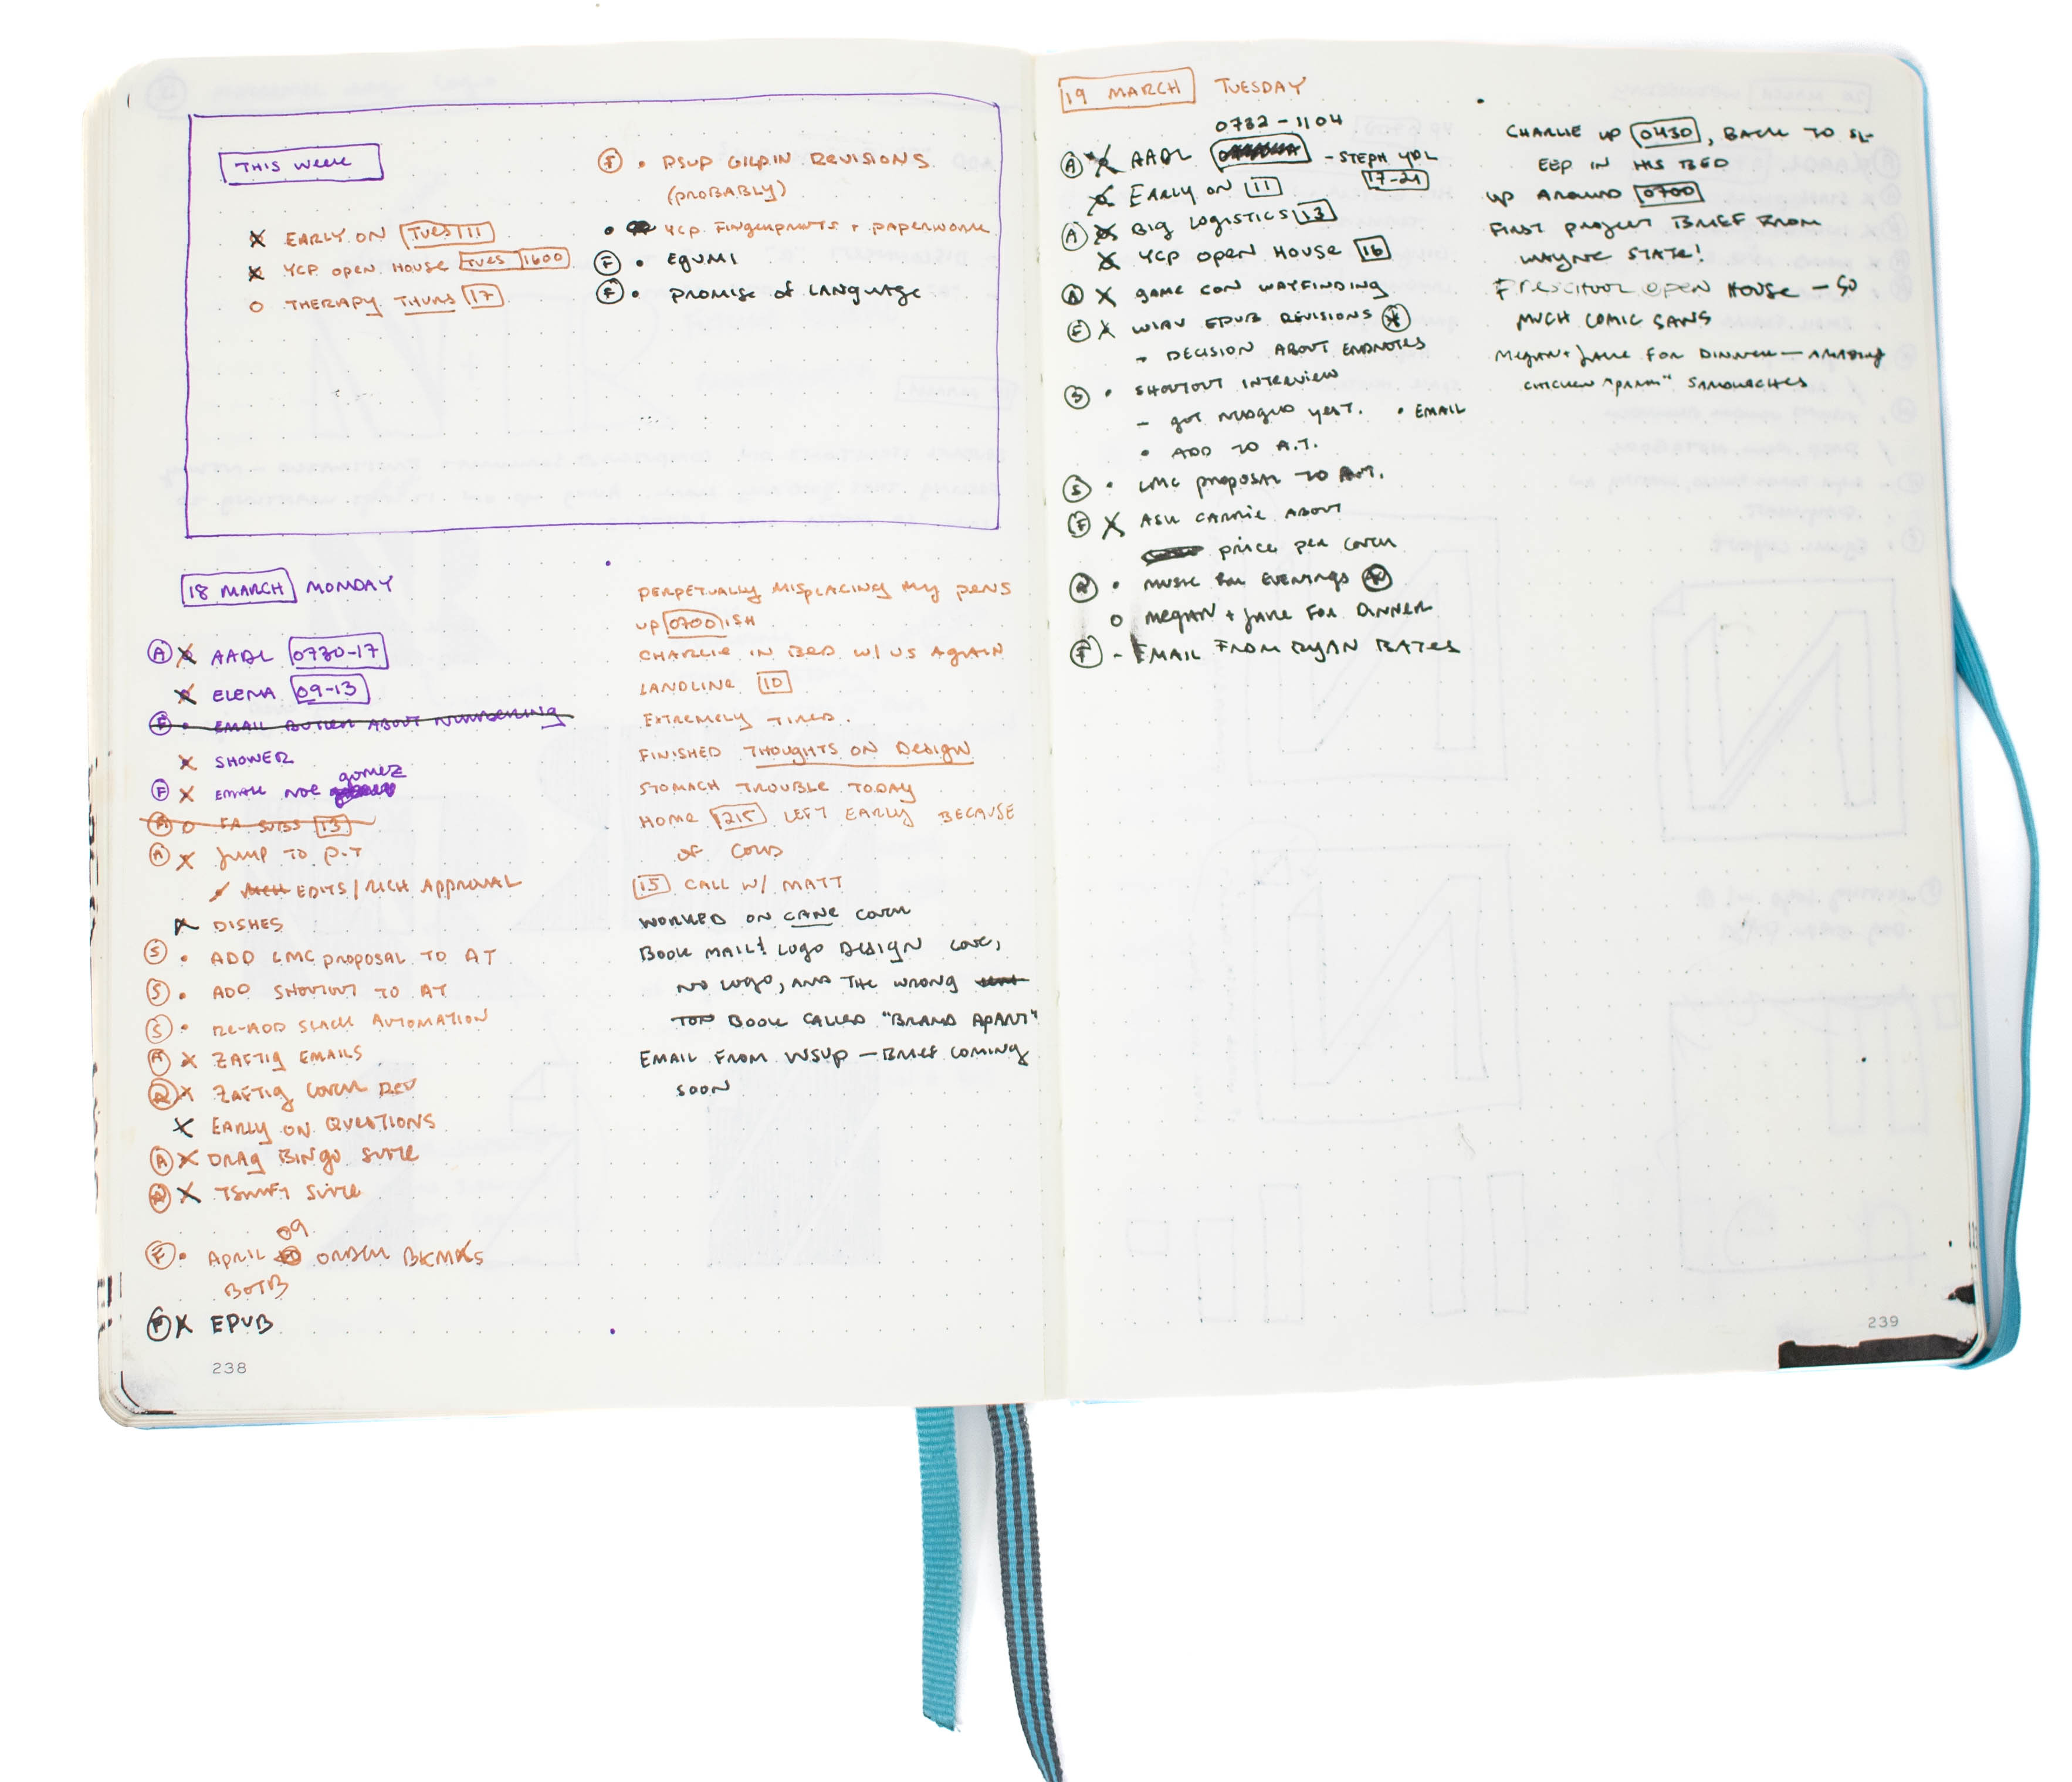 THIS WEEK
X EARLY ON TUES 11
X YCP OPEN HOUSE TUES 1600
O THERAPY THURS 17
F • PSUP GILPIN REVISIONS
(PROBABLY)
• YCP FINGERPRINTS + PAPERWORK
F • EGUMI
F • PROMISE OF LANGUAGE
18 MARCH MONDAY
A X AADL 0730-17
X ELENA 09-13
F • EMAIL BUTLER ABOUT NUMBERING
X SHOWER
GOMEZ
F X EMAIL NOE
A O FA SUBS 13
A X JUMP TO P.T
EDITS/RICH APPROVAL
X DISHES
S • ADD LMC PROPOSAL TO AT
S • ADD SHOUTOUT TO AT
S • RE-ADD SLACK AUTOMATION
A X ZAFTIG EMAILS
A X ZAFTIG COVER REV
X EARLY ON QUESTIONS
A X DRAG BINGO SUITE
A X SUITE
09
F • APRIL ORDER BKMKS
BOTB
F X EPUB
PERPETUALLY MISPLACING MY PENS
UP 0700 ISH
CHARLIE IN BED W/ US AGAIN
LANDLINE 10
EXTREMELY TIRED.
FINISHED THOUGHTS ON DESIGN
STOMACH TROUBLE TODAY
HOME 1215 LEFT EARLY BECAUSE
OF COLD
15 CALL W/ MATT
WORKED ON CANE COVER
BOOK MAIL! LOGO DESIGN LOVE,
NO LOGO, AND THE WRONG
BOOK CALLED "BRAND APART"
EMAIL FROM WSUP – BRIEF COMING
SOON
238
19 MARCH TUESDAY
0732-1104
A X AADL - STEPH YDL
17-21
X EARLY ON 11
A X BIG LOGISTICS 13
X YCP OPEN HOUSE 16
A X GAME CON WAYFINDING
F X EPUB REVISIONS *
- DECISION ABOUT ENDNOTES
S • SHOUTOUT INTERVIEW
- GOT NUDGED YEST. • EMAIL
• ADD TO A.T.
S • LMC PROPOSAL TO A.T.
F X ASK CARRIE ABOUT
PRICE PER COVER
A • MUSIC FOR EVENINGS
O MEGAN + JANE FOR DINNER
F - EMAIL FROM RYAN BATES
CHARLIE UP 0430, BACK TO SL-
EEP IN HIS BED
UP AROUND 0700
FIRST PROJECT BRIEF FROM
WAYNE STATE!
PRESCHOOL OPEN HOUSE – SO
MUCH COMIC SANS
MEGAN + JANE FOR DINNER – AMAZING
CHICKEN "PARM" SANDWICHES
239